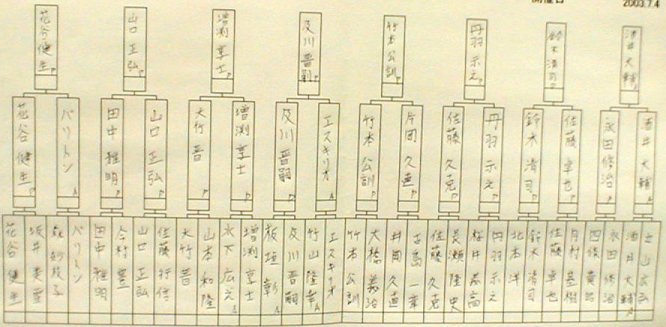 開催日
2003.7.4
花谷健生
山口正弘
増渕享士
及川晋嗣
竹本公訓
丹羽示之
鈴木清司
酒井大輔
花谷健生
バリトン
田中雅明
山口正弘
大竹晋
増渕享士
及川晋嗣
エスキリオ
竹本公訓
片岡久直
佐藤久克
丹羽示之
鈴木清司
佐藤卓也
永田修治
酒井大輔
花谷健生
坂井
バリトン
田中雅明
今村豊
山口正弘
佐藤
大竹晋
山本和隆
木下広之
増渕享士
板垣彰
及川晋嗣
竹山隆幸
エスキリオ
竹本公訓
大橋義治
片岡久直
佐藤久克
長瀬隆史
桜井基高
丹羽示之
北本洋
鈴木清司
佐藤卓也
永田修治
酒井大輔